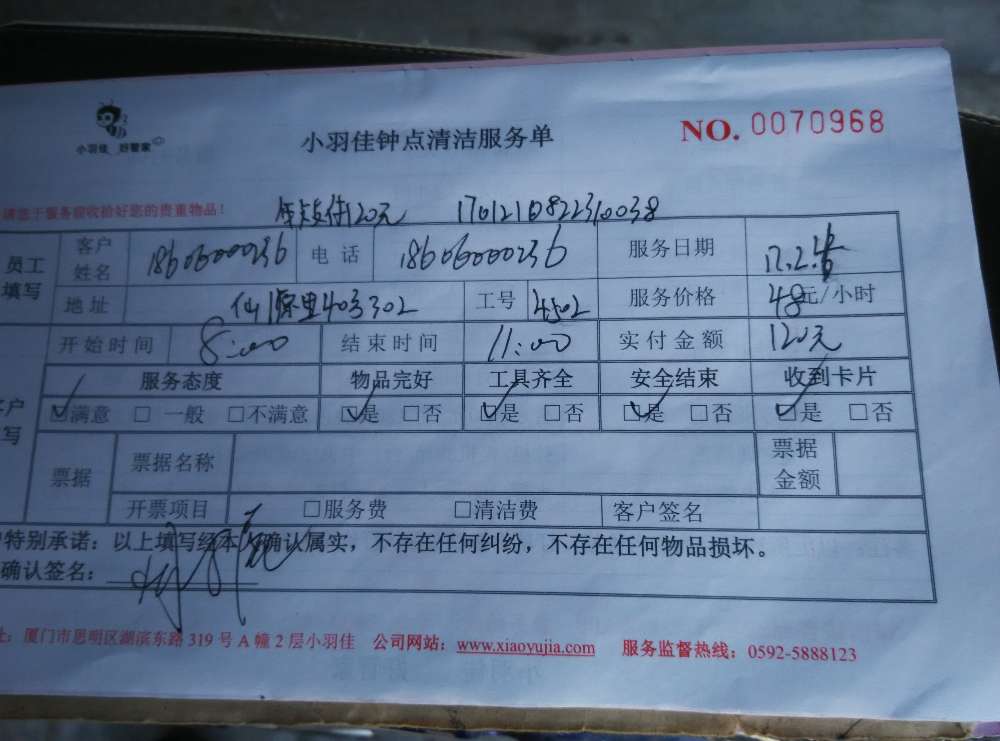 小羽佳 好管家
小羽佳钟点清洁服务单
NO. 0070968
请您于服务前收拾好您的贵重物品！
年卡支付120元 1701210822310038
员工填写 客户姓名 18606000236 电话 18606000236 服务日期
地址 403 302 工号 4502 服务价格 48元/小时
开始时间 8:00 结束时间 11:00 实付金额 120元
服务态度 物品完好 工具齐全 安全结束 收到卡片
客户填写 ☑满意 □一般 □不满意 ☑是 □否 ☑是 □否 ☑是 □否 ☑是 □否
票据 票据名称 票据金额
开票项目 □服务费 □清洁费 客户签名
特别承诺：以上填写经本人确认属实，不存在任何纠纷，不存在任何物品损坏。
确认签名：
址：厦门市思明区湖滨东路 319 号 A 幢 2 层小羽佳 公司网站：www.xiaoyujia.com 服务监督热线：0592-5888123